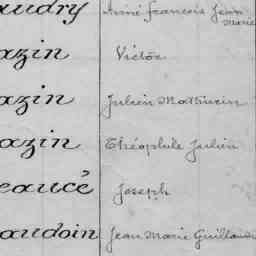 audry Aimé françois Jean
Marie
azin Victor
azin Julien Mathurin
azin Théophile Julien
eaucé Joseph
audoin Jean Marie Guillaum